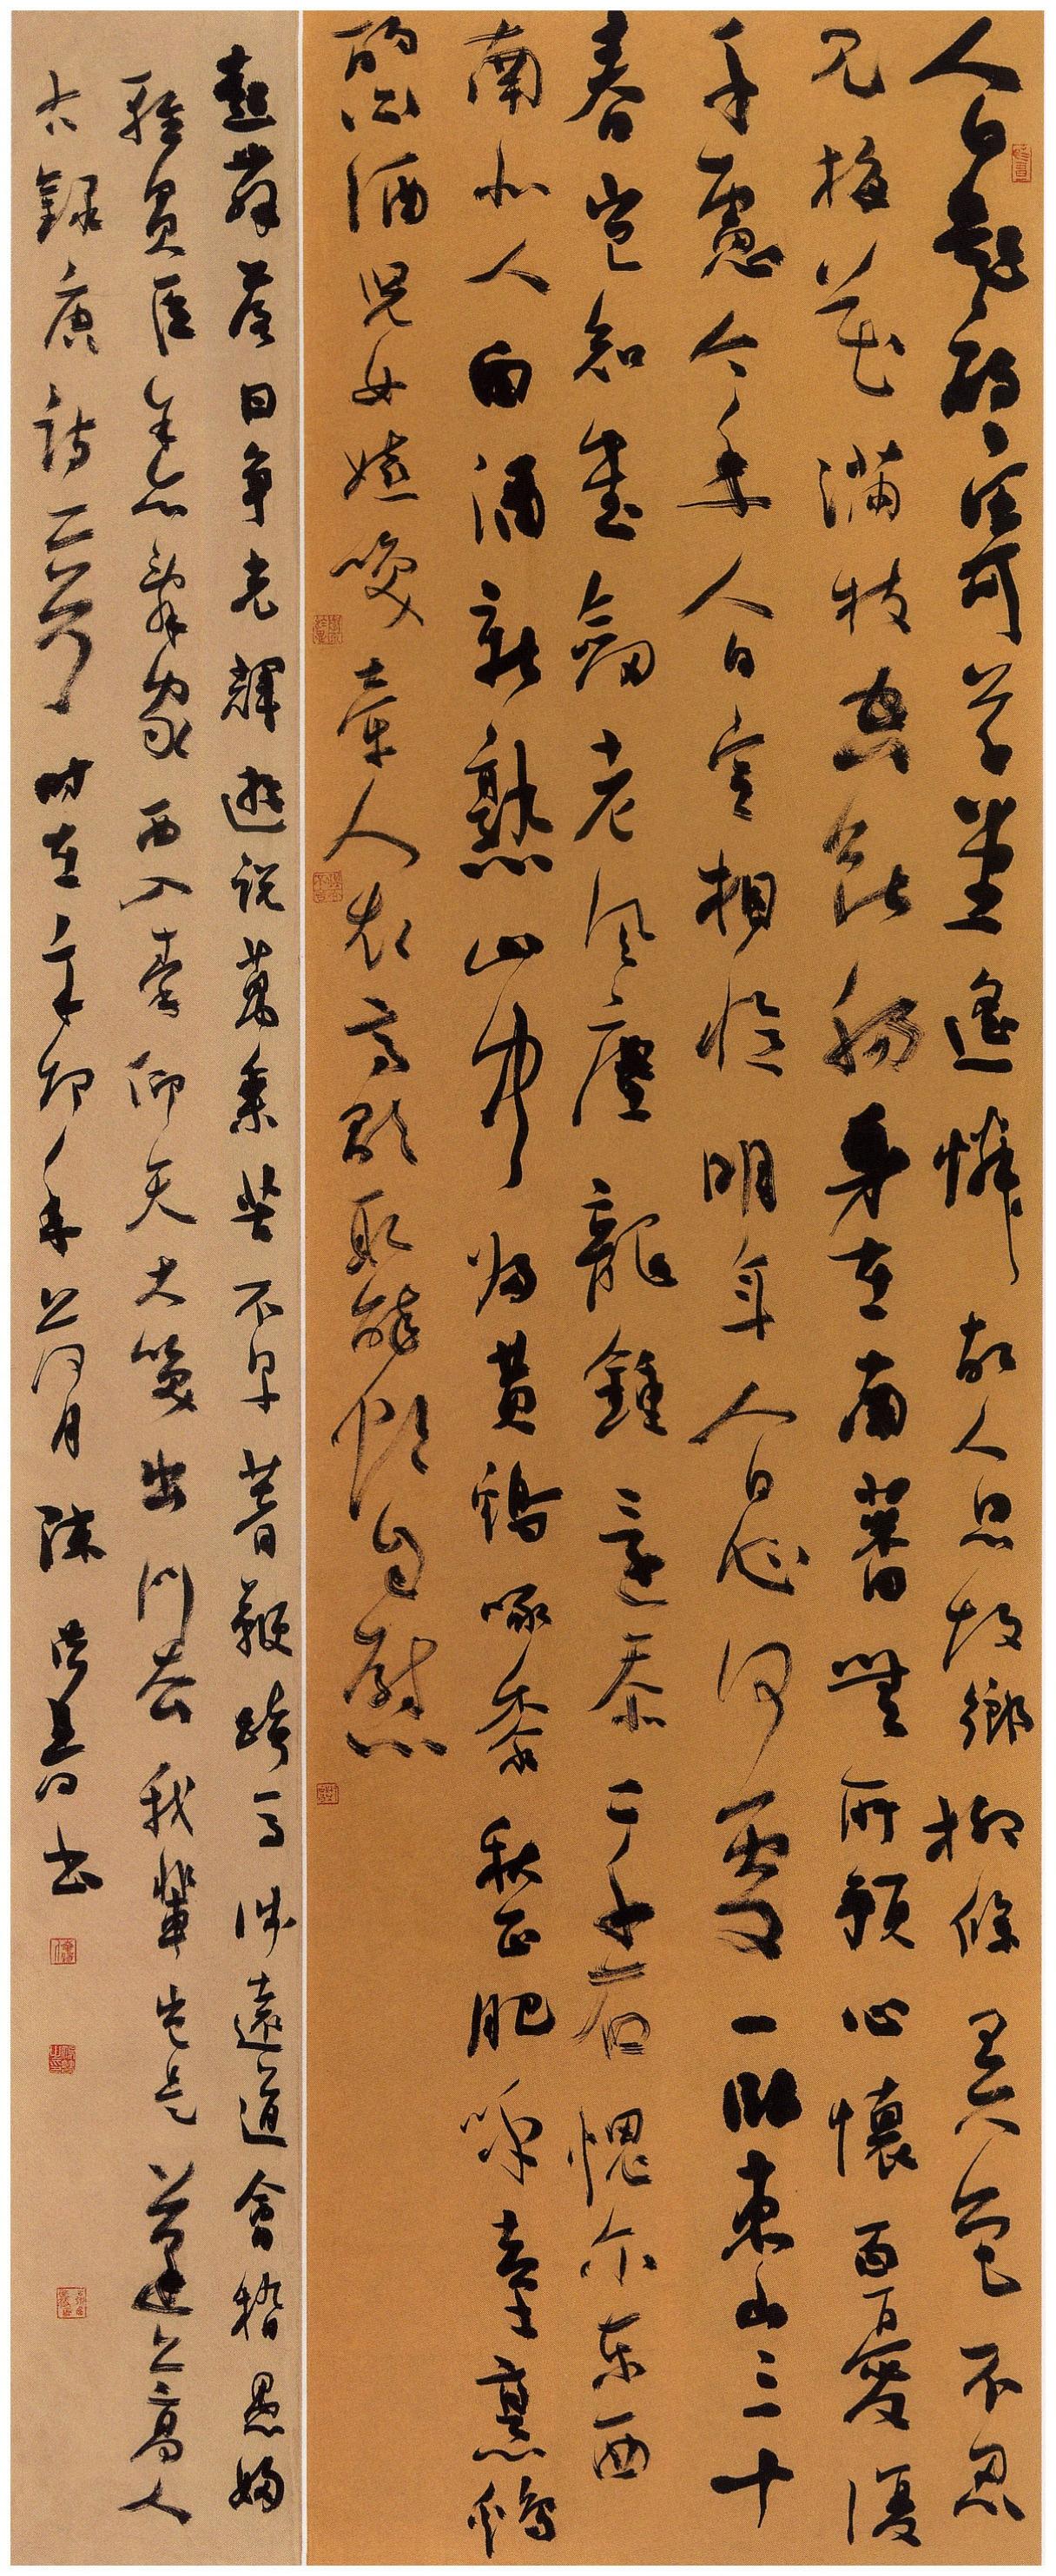 人日題詩寄草堂遙憐故人思故鄉柳條弄色不忍
見梅花滿枝空斷腸身在南蕃無所預心懷百憂復
千慮今年人日空相憶明年人日知何處一臥東山三十
春豈知書劍老風塵龍鍾還忝二千石愧爾東西
南北人白酒新熟山中歸黃鷄啄黍秋正肥呼童烹鷄
酌白酒兒女嬉笑牽人衣高歌取醉欲自慰
起舞落日爭光輝遊說萬乘苦不早著鞭跨馬涉遠道會稽愚婦
輕買臣余亦辭家西入秦仰天大笑出門去我輩豈是蓬蒿人
右錄唐詩二首時在辛卯年月陳書